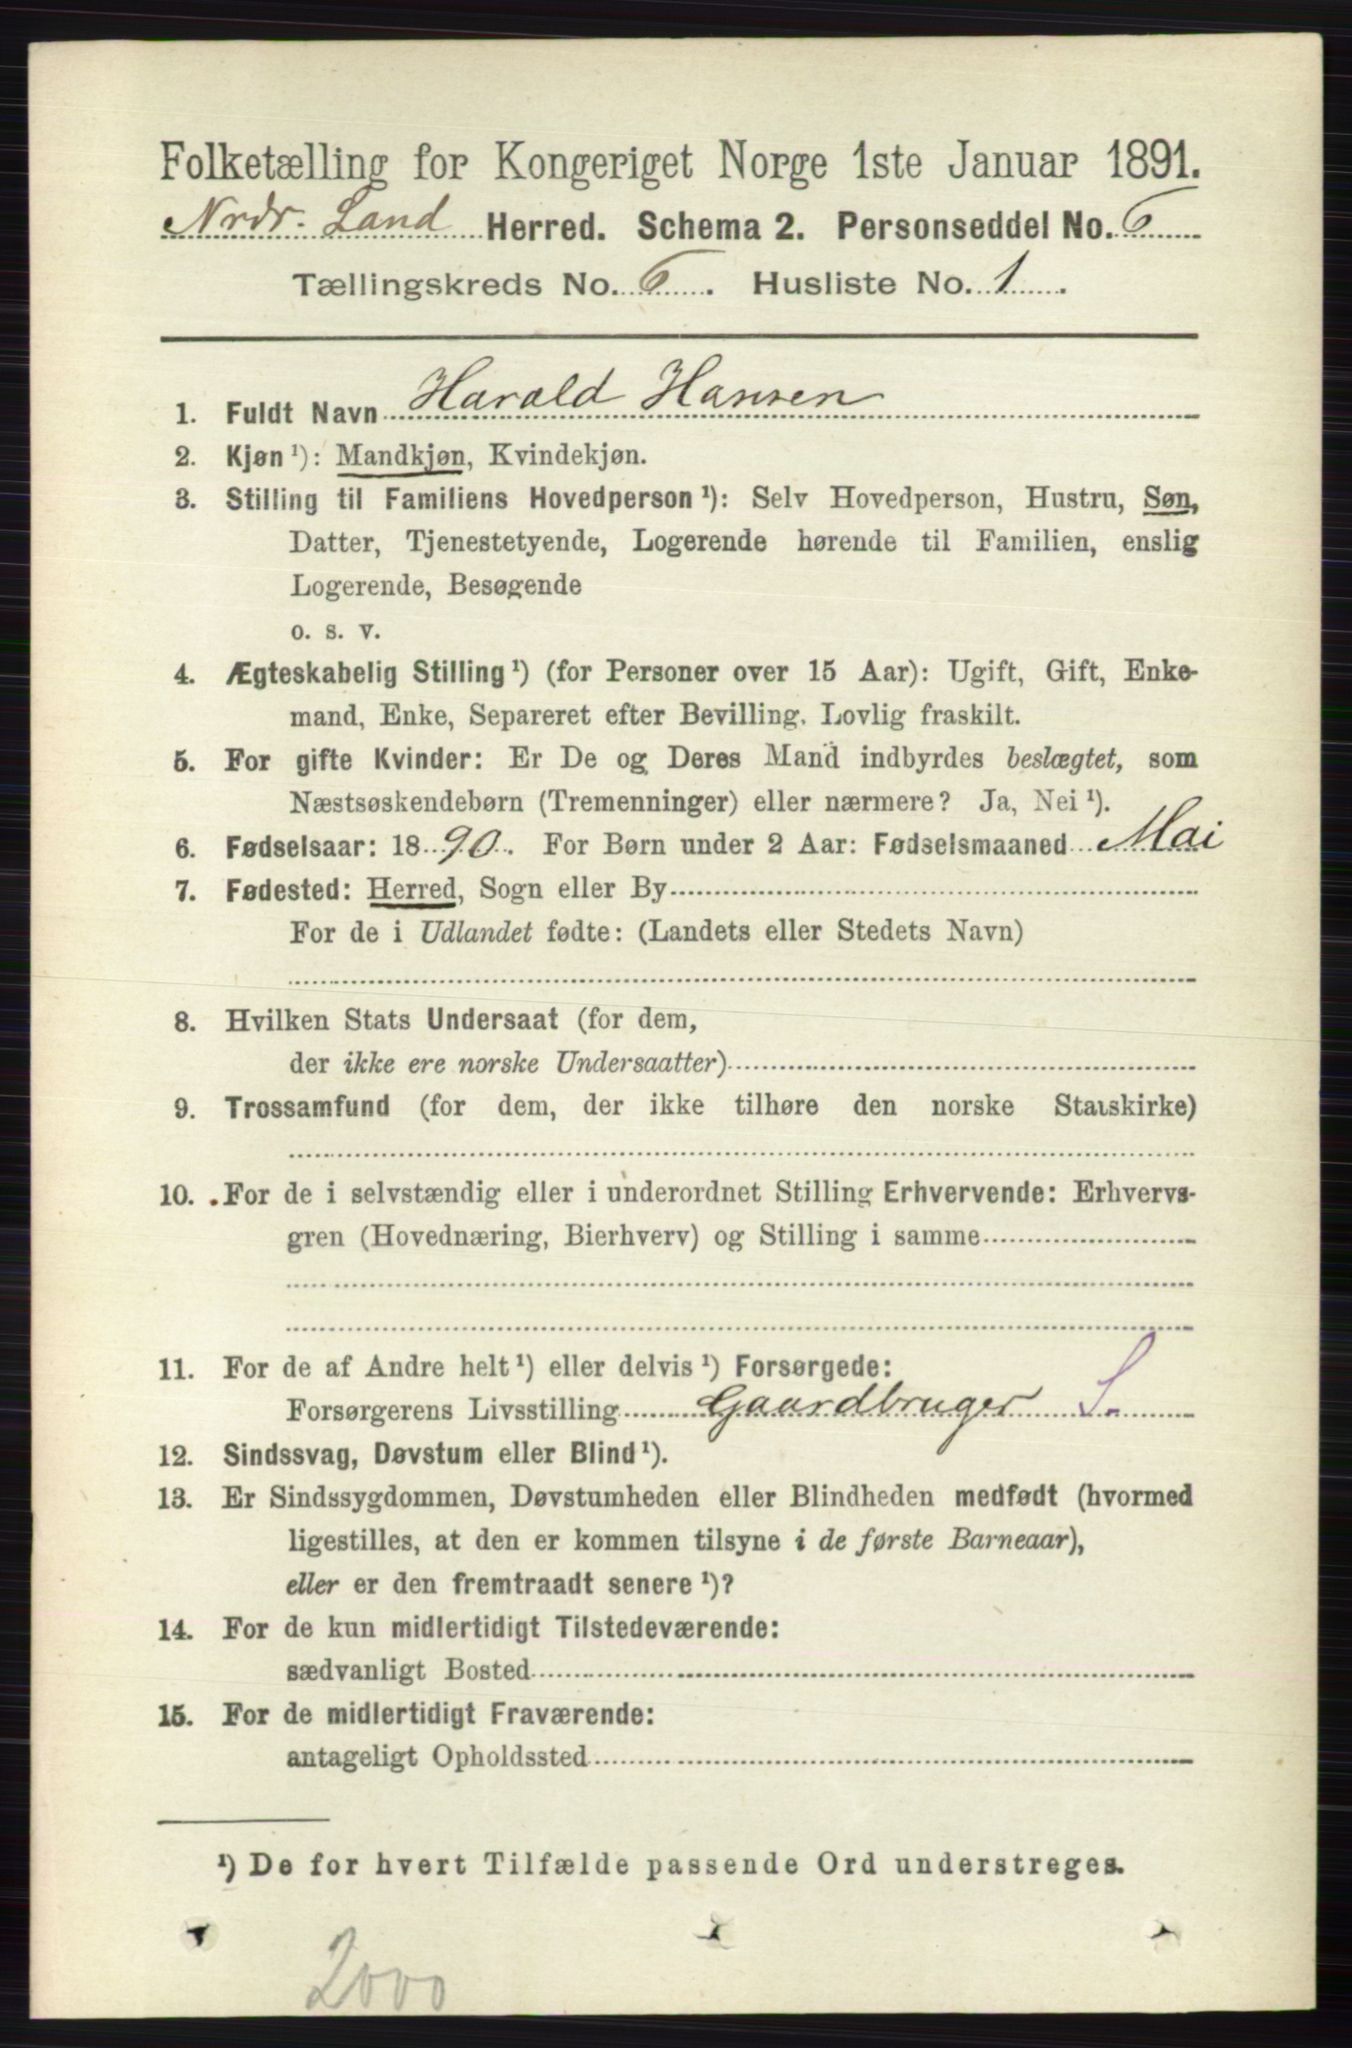 Folketælling for Kongeriget Norge 1ste Januar 1891.
Nrdr. Land Herred. Schema 2. Personseddel No. 6
Tællingskreds No. 6. Husliste No. 1.
1. Fuldt Navn Harald Hansen
2. Kjøn ¹): Mandkjøn, Kvindekjøn.
3. Stilling til Familiens Hovedperson ¹): Selv Hovedperson, Hustru, Søn,
Datter, Tjenestetyende, Logerende hørende til Familien, enslig
Logerende, Besøgende
o. s. v.
4. Ægteskabelig Stilling ¹) (for Personer over 15 Aar): Ugift, Gift, Enke-
mand, Enke, Separeret efter Bevilling. Lovlig fraskilt.
5. For gifte Kvinder: Er De og Deres Mand indbyrdes beslægtet, som
Næstsøskendebørn (Tremenninger) eller nærmere? Ja, Nei ¹).
6. Fødselsaar: 1890. For Børn under 2 Aar: Fødselsmaaned Mai
7. Fødested: Herred, Sogn eller By
For de i Udlandet fødte: (Landets eller Stedets Navn)
8. Hvilken Stats Undersaat (for dem,
der ikke ere norske Undersaatter)
9. Trossamfund (for dem, der ikke tilhøre den norske Statskirke)
10. For de i selvstændig eller i underordnet Stilling Erhvervende: Erhvervs-
gren (Hovednæring, Bierhverv) og Stilling i samme
11. For de af Andre helt ¹) eller delvis ¹) Forsørgede:
Forsørgerens Livsstilling Gaardbruger S.
12. Sindssvag, Døvstum eller Blind ¹).
13. Er Sindssygdommen, Døvstumheden eller Blindheden medfødt (hvormed
ligestilles, at den er kommen tilsyne i de første Barneaar),
eller er den fremtraadt senere ¹)?
14. For de kun midlertidigt Tilstedeværende:
sædvanligt Bosted
15. For de midlertidigt Fraværende:
antageligt Opholdssted
¹) De for hvert Tilfælde passende Ord understreges.
2000